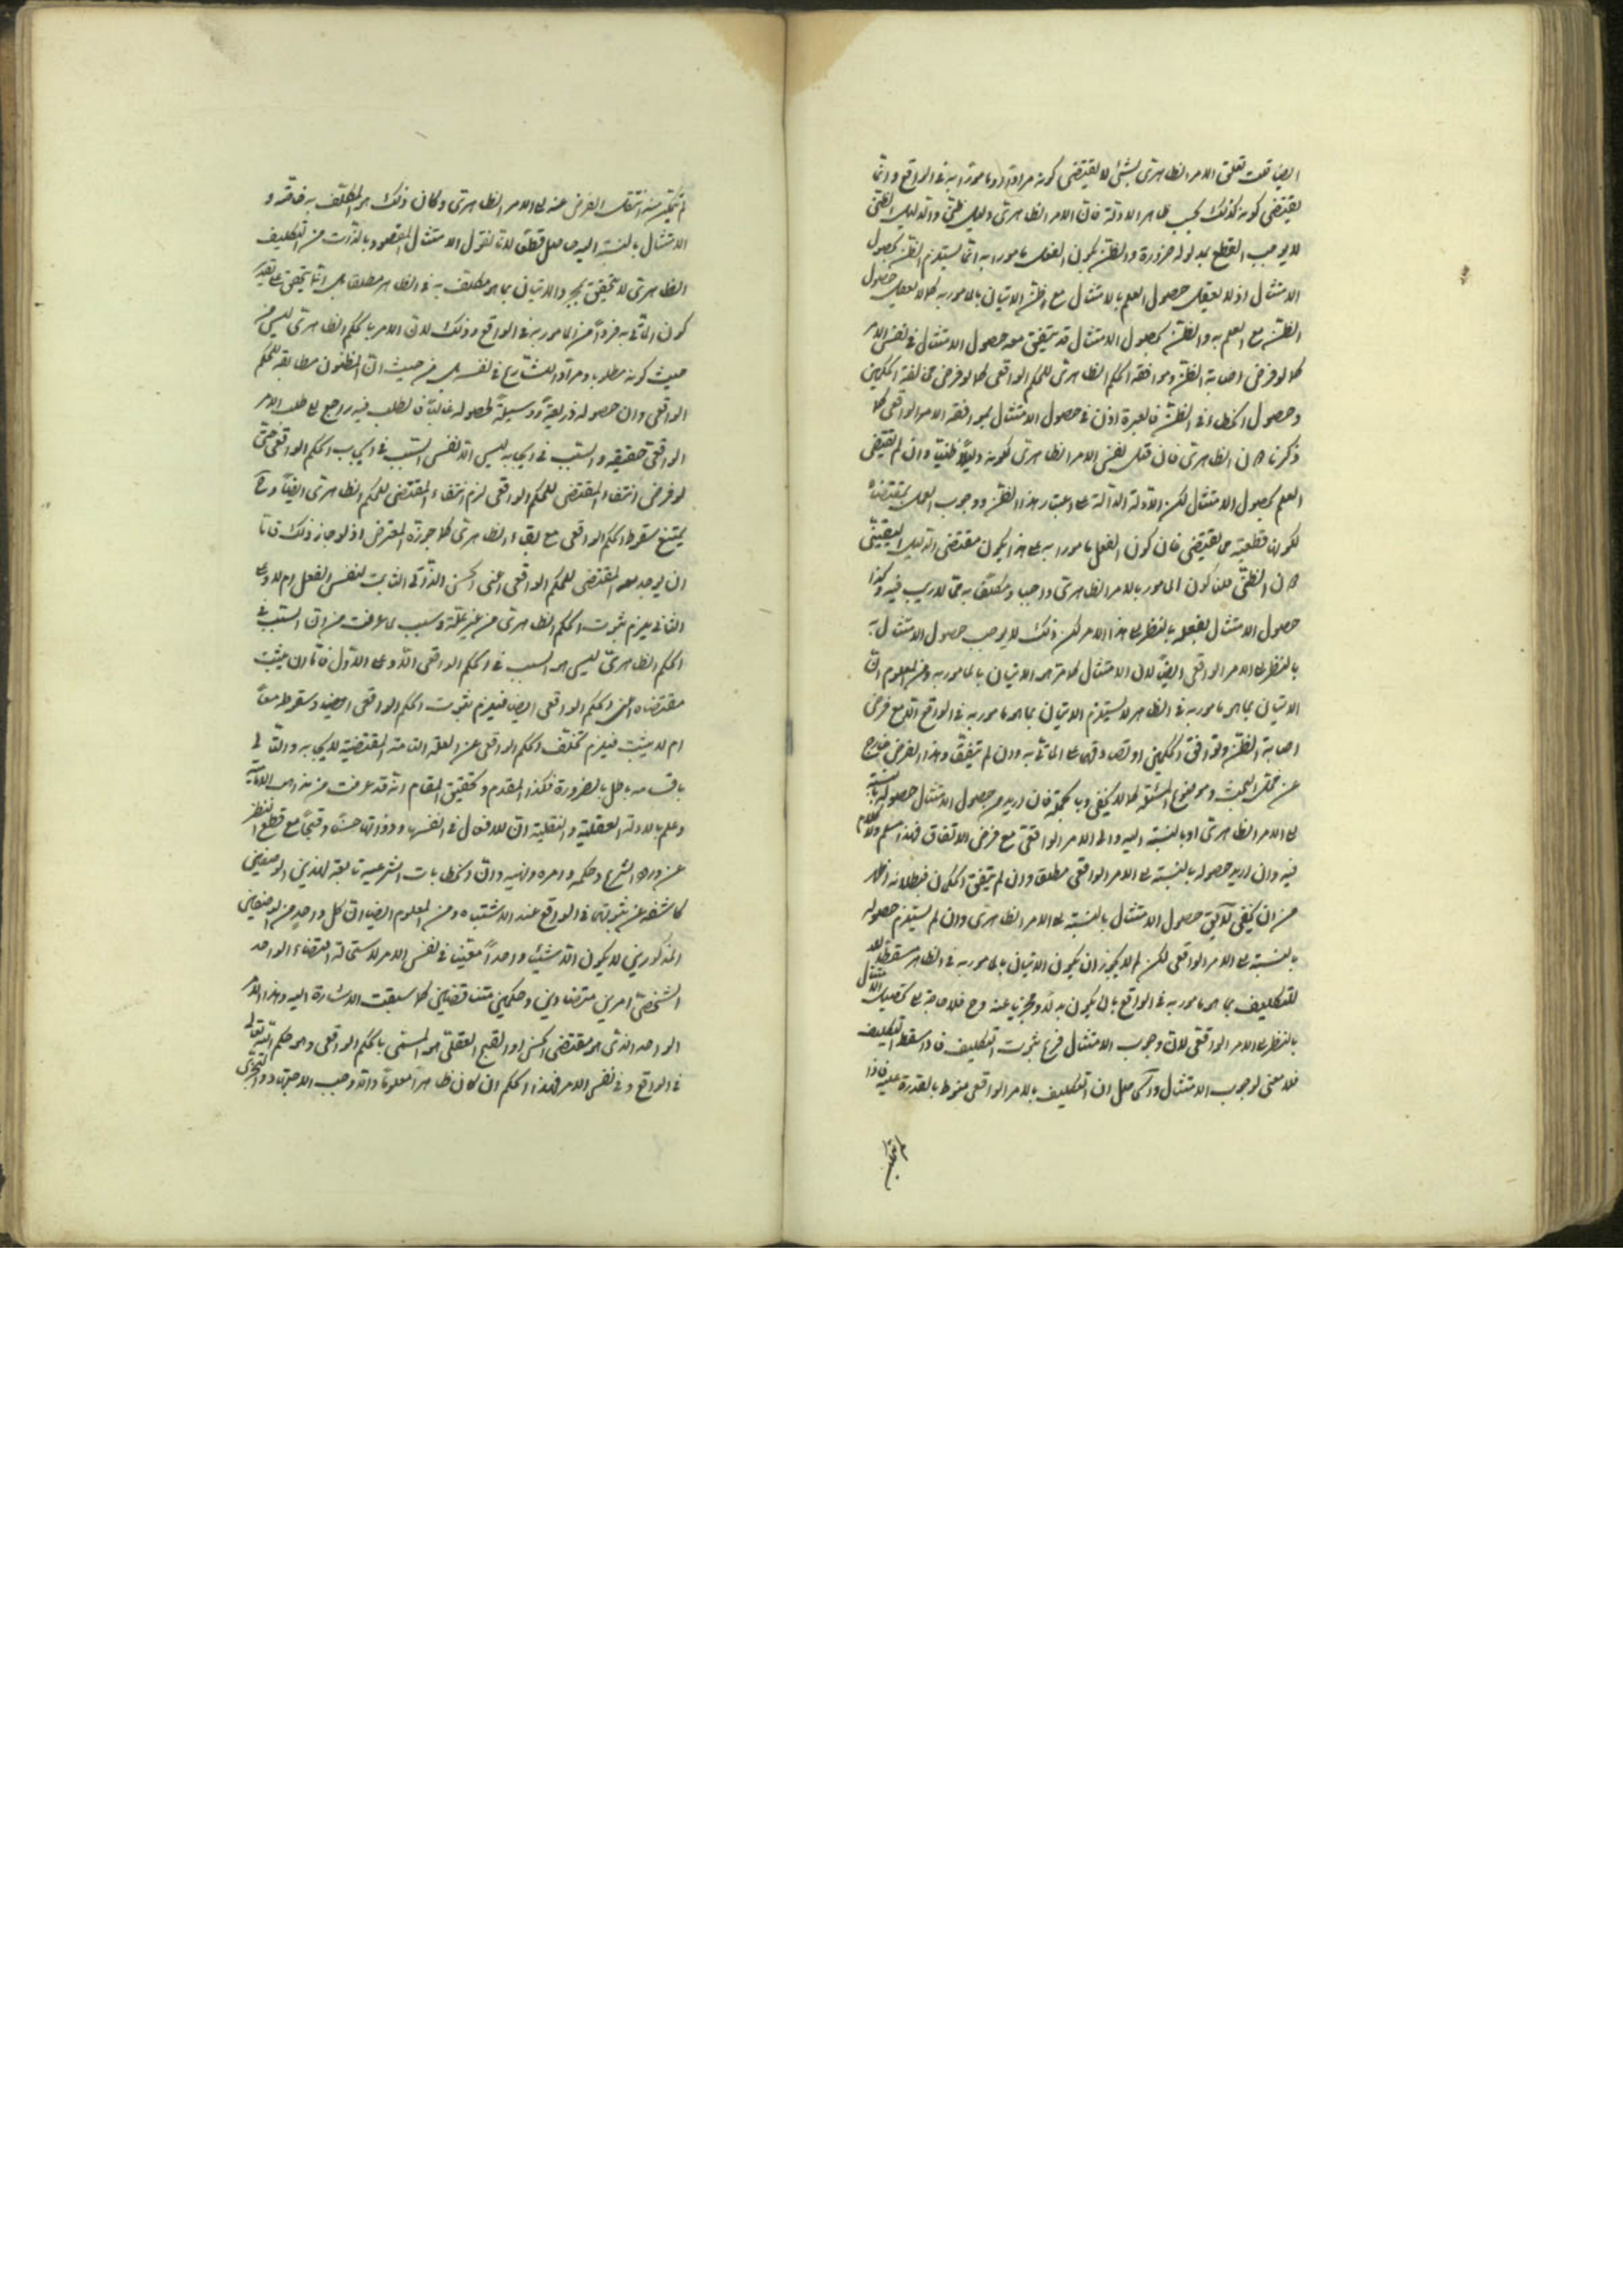 ايضا قلت تعلق الامر الظاهري بشئ لا يقتضي كونه مرادا ومامورا به في الواقع وانما
يقتضي كونه كذلك بحسب ظاهر الادلة فان الامر الظاهري دليل ظني والدليل الظني
لا يوجب القطع بمدلوله ضرورة والظن بكون الفعل مامورا به انما يستلزم الظن بحصول
الامتثال اذ لا يعقل حصول العلم بالامتثال مع الظن الاتيان بالمامور به كما لا يعقل حصول
الظن مع العلم به والظن بحصول الامتثال قد يتحقق معه حصول الامتثال في نفس الامر
كما لو فرض اصابة الظن وموافقة الحكم الظاهري للحكم الواقعي كما لو فرض مخالفة الحكمين
وحصول الخطاء في الظن فالعبرة اذن في حصول الامتثال بموافقة الامر الواقعي كما
ذكرنا لا الظاهري فان قلت نفس الامر الظاهري لكونه دليلا ظنيا وان لم يقتضي
العلم بحصول الامتثال لكن الادلة الدالة على اعتبار هذا الظن ووجوب العمل بمقتضاه
لكونها قطعية مما يقتضي فان كون الفعل مامورا به على هذا يكون مقتضى الدليل اليقيني
لا الظني قلنا كون المامور بالامر الظاهري واجبا ومكلفا به مما لا ريب فيه وكذا
حصول الامتثال بفعله بالنظر الى هذا الامر لكن ذلك لا يوجب حصول الامتثال به
بالنظر الى الامر الواقعي ايضا لان الامتثال كما مر هو الاتيان بالمامور به ومن المعلوم ان
الاتيان بما هو مامور به في الظاهر لا يستلزم الاتيان بما هو مامور به في الواقع الا مع فرض
اصابة الظن وتوافق الحكمين او تصادقهما على الماتي به وان لم يتفق وهذا الفرض خارج
عن محل البحث وموضوع المسئلة كما لا يخفى وبالجملة فان اريد من حصول الامتثال حصوله بالنسبة
الى الامر الظاهري او بالنسبة اليه والى الامر الواقعي مع فرض الاتفاق فهذا مسلم ولا كلام
فيه وان اريد حصوله بالنسبة الى الامر الواقعي مطلقا وان لم يتفق الحكمان فبطلانه اظهر
من ان يخفى لا يق حصول الامتثال بالنسبة الى الامر الظاهري وان لم يستلزم حصوله
بالنسبة الى الامر الواقعي لكن لم لا يجوز ان يكون الاتيان بالمامور به في الظاهر مسقطا
للتكليف بما هو مامور به في الواقع بان يكون بدلا ومجزيا عنه وح فلا حاجة الى تحصيل الامتثال
بالنظر الى الامر الواقعي لان وجوب الامتثال فرع ثبوت التكليف فاذا سقط التكليف
فلا معنى لوجوب الامتثال والحاصل ان التكليف بالامر الواقعي منوط بالقدرة عليه فاذا
لم يتمكن
لم يتمكن منه انتقل الفرض عنه الى الامر الظاهري وكان ذلك هو المكلف به خاصة و
الامتثال بالنسبة اليه حاصل قطعا لانا نقول الامتثال المقصود بالذات من التكليف
الظاهري لا يتحقق بمجرد الاتيان بما هو مكلف به في الظاهر مطلقا بل انما يتحقق على تقدير
كون الماتي به فردا من المامور به في الواقع وذلك لان الامر بالحكم الظاهري ليس من
حيث كونه مطلوبا ومرادا للشارع في نفسه بل من حيث ان المظنون مطابقته للحكم
الواقعي وان حصوله ذريعة ووسيلة لحصوله غالبا فالطلب فيه راجع الى طلب الامر
الواقعي حقيقة والسبب في ايجابه ليس الا نفس السبب في ايجاب الحكم الواقعي حتى
لو فرض انتفاء المقتضي للحكم الواقعي لزم انتفاء المقتضي للحكم الظاهري ايضا وح
يمتنع سقوط الحكم الواقعي مع بقاء الظاهري كما جوزه المعترض اذ لو جاز ذلك فاما
ان يوجد معه المقتضي للحكم الواقعي اعني الحسن الذاتي الثابت لنفس الفعل ام لا وعلى
الثاني يلزم ثبوت الحكم الظاهري من غير علة وسبب لما عرفت من ان السبب في
الحكم الظاهري ليس هو السبب في الحكم الواقعي الا وعلى الاول فاما ان يثبت
مقتضاه اعني الحكم الواقعي ايضا فيلزم ثبوت الحكم الواقعي ايضا وسقوطه معا
ام لا يثبت فيلزم تخلف الحكم الواقعي عن العلة التامة المقتضية لايجابه والتالي
باقسامه باطل بالضرورة فكذا المقدم وتحقيق المقام انه قد عرفت من مذهب الامامية
وعلم بالادلة العقلية والنقلية ان للافعال في انفسها وذواتها حسنا وقبحا مع قطع النظر
عن ورود الشرع وحكمه وامره ونهيه وان الخطابات الشرعية تابعة لهذين الوصفين
كاشفة عن ثبوتهما في الواقع عند الاشتباه ومن المعلوم ايضا ان كل واحد من الوصفين
المذكورين لا يكون الا شيئا واحدا معينا في نفس الامر لاستحالة اقتضاء الواحد
الشخصي امرين متضادين وحكمين متناقضين كما سبقت الاشارة اليه وهذا الامر
الواحد الذي هو مقتضى الحسن او القبح العقلي هو المسمى بالحكم الواقعي وهو حكم الله تعالى
في الواقع وفي نفس الامر فهذا الحكم ان كان ظاهرا معلوما والا وجب الاجتهاد والتحري